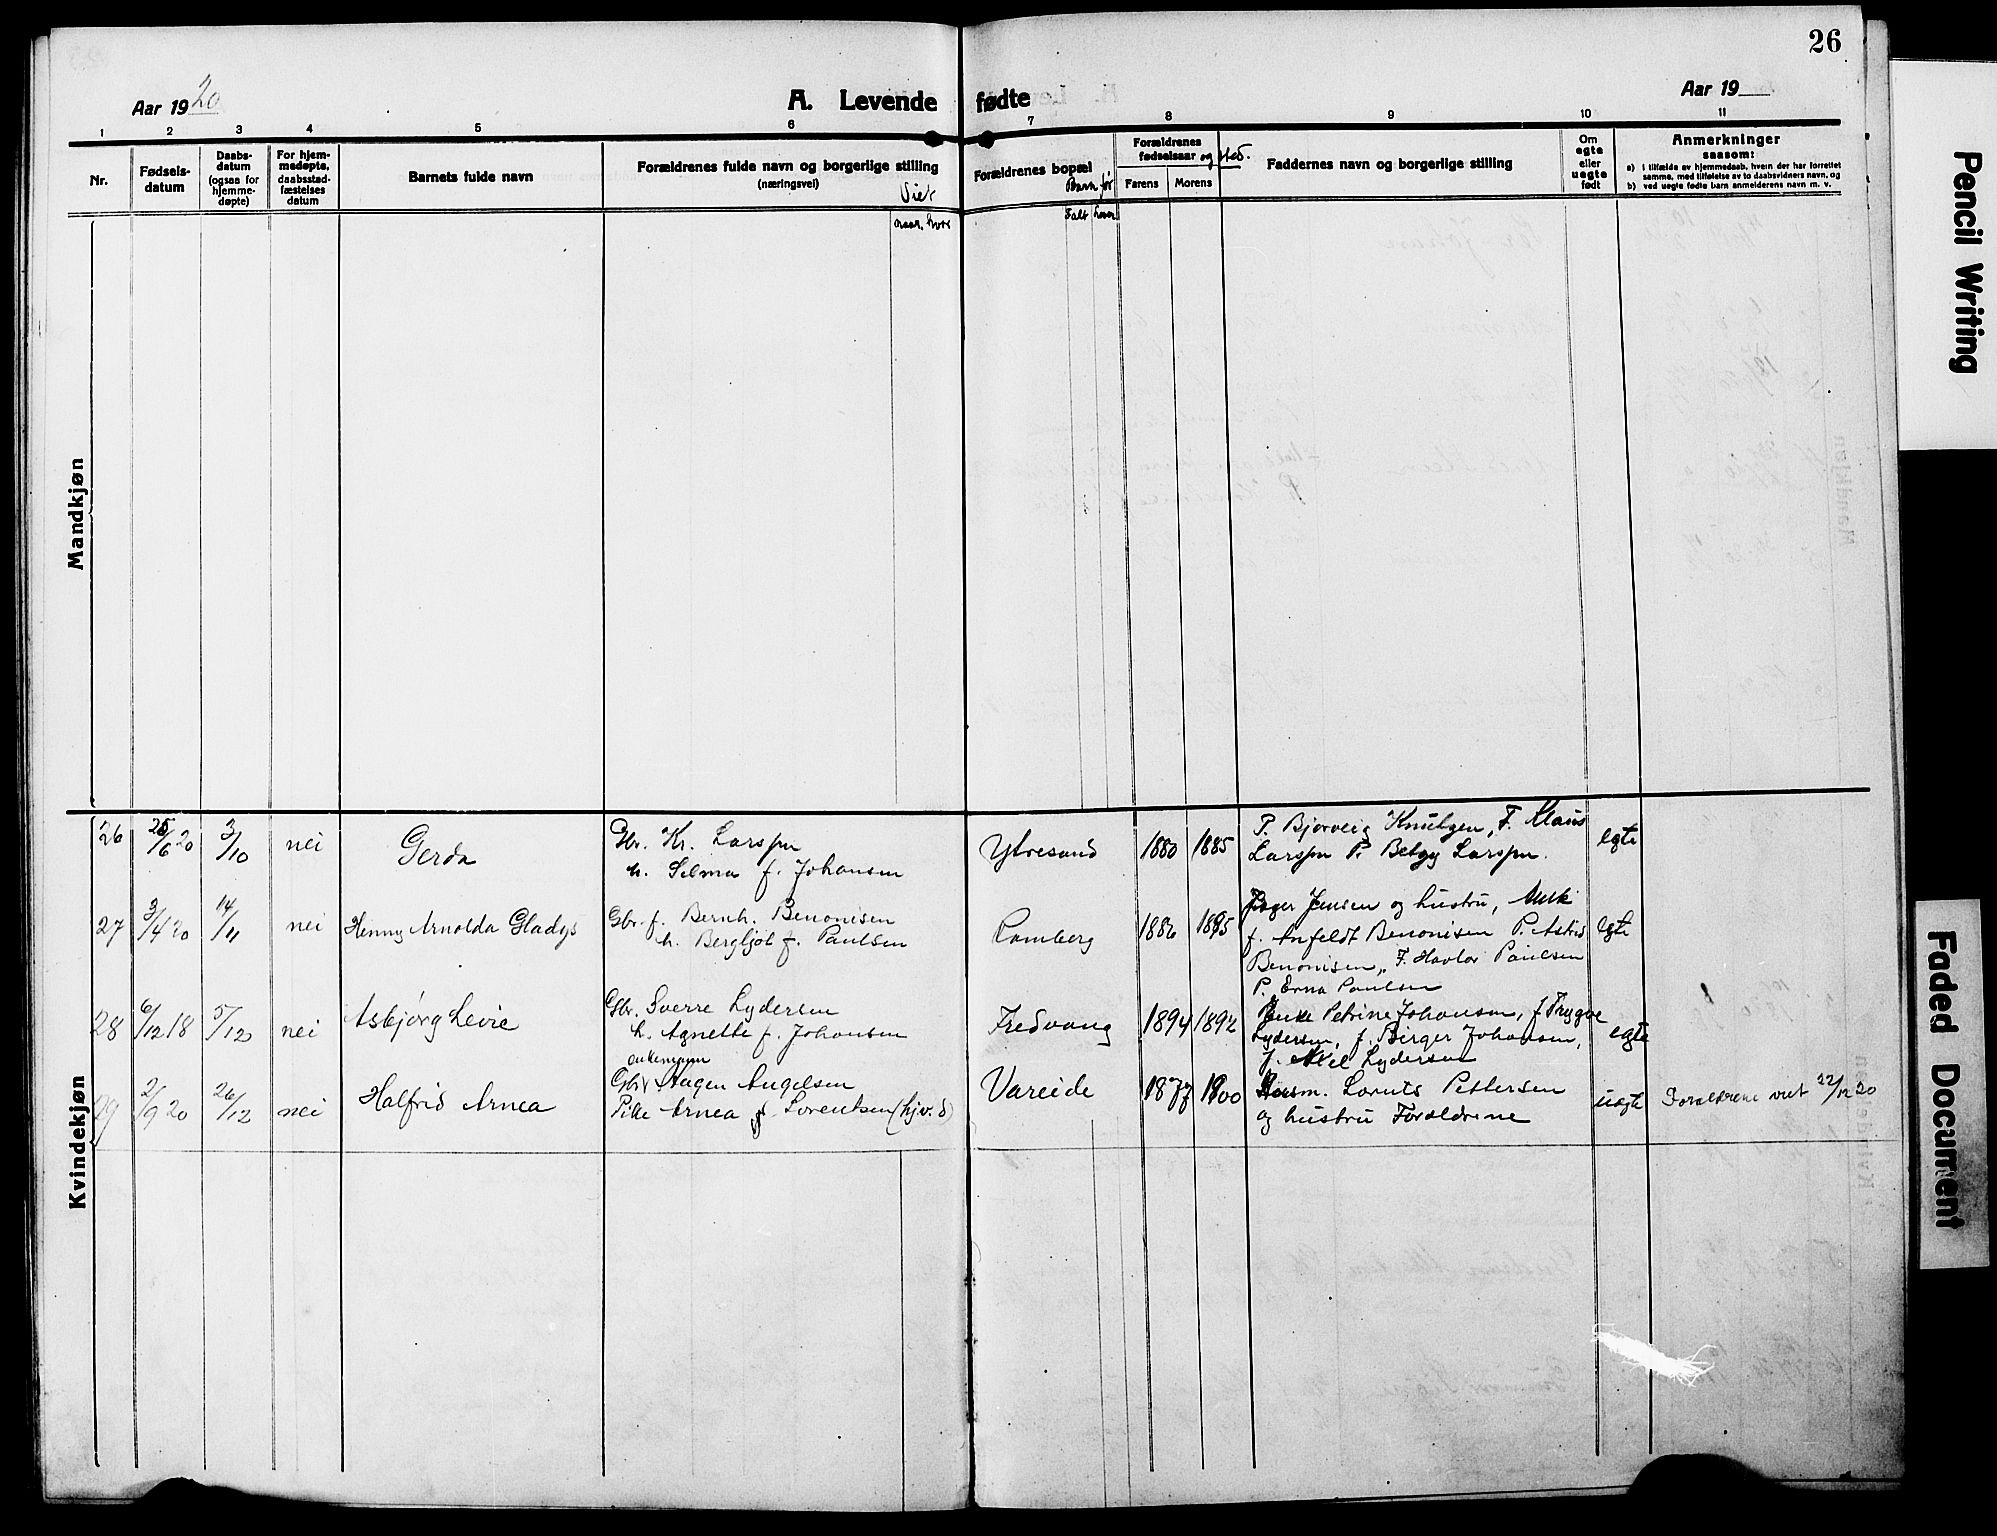 26
Aar 1920
A. Levende fødte
Aar 19
1 2 3 4 5 6 7 8 9 10 11
Nr.
Fødsels-
datum
Daabs-
datum
(ogsaa for
hjemme-
døpte)
For hjem-
medøpte,
daabsstad-
fæstelses
datum
Barnets fulde navn
Forældrenes fulde navn og borgerlige stilling
(næringsvei)
Viet
naar, hvor
Forældrenes bopæl
Barn før
Talt
Forældrenes
fødselsaar og sted.
Farens Morens
Faddernes navn og borgerlige stilling
Om
egte
eller
uegte
født
Anmerkninger
saasom:
a) i tilfælde av hjemmedaab, hvem der har forrettet
samme, med tilføielse av to daabsvidners navn, og
b) ved uegte fødte barn anmelderens navn m. v.
Mandkjøn
Kvindekjøn
26 25/6 20 3/10 nei Gerda
Gbr. Kr. Larssen
h. Selma f. Johansen
Ytresand 1880 1885
P. Bjørveig Knutzen, F. Klaus
Larssen P. Betzy Larssen.
egte
27 3/4 20 14/11 nei Henny Arnolda Gladys
Gbr. f. Bernh. Benonisen
h. Bergljot f. Paulsen
Ramberg 1886 1895
Inger Jensen og hustru,
f. Anfeldt Benonisen P. Astrid
Benonisen, F. Havlor Paulsen
P. Erna Paulsen
egte
28 6/12 18 5/12 nei Asbjørg Levie
Gbr. Sverre Lydersen
h. Agnette f. Johansen
Fredvang 1894 1892
Petrine Johansen, f. Trygve
Lydersen, f. Birger Johansen,
f. Axel Lydersen
egte
29 2/9 20 26/12 nei Halfrid Arnea
enkemann
Gbr. Hagen Angelsen
Pike Arnea f. Lorentsen (hjv. d)
Vareide 1877 1900
Husm. Lornts Pettersen
og hustru Forældrene
uegte
Forældrene viet 22/12 20
Pencil Writing
Faded Document